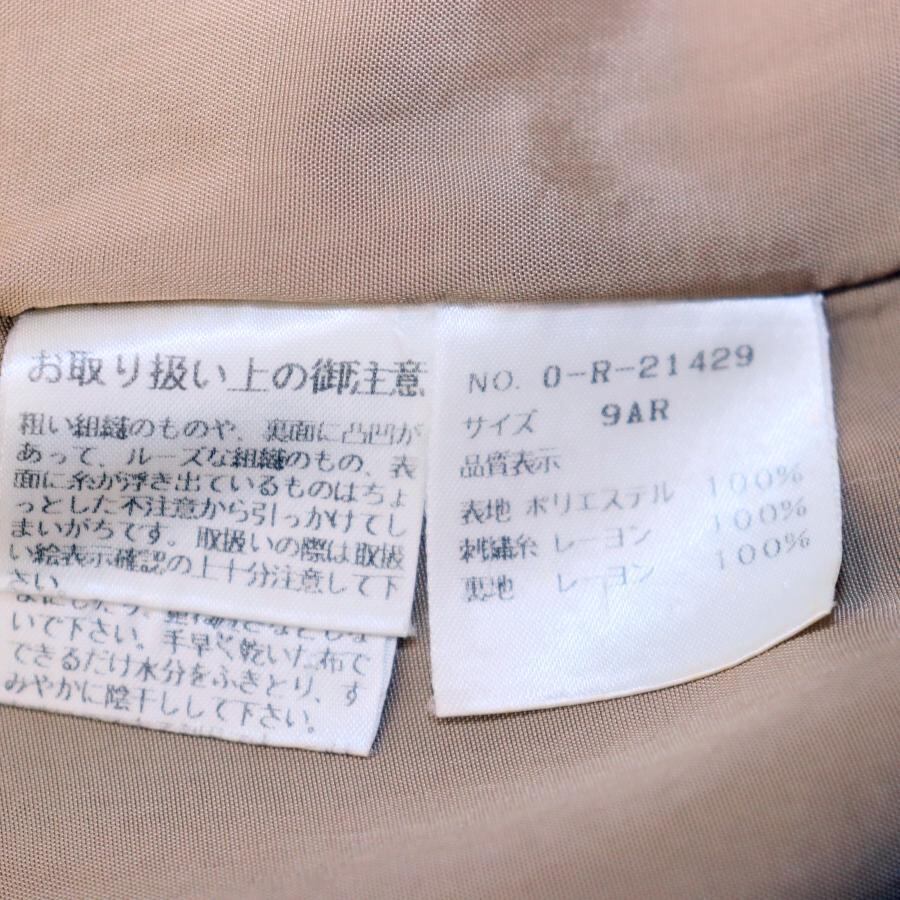 お取り扱い上の御注意
粗い組織のものや、裏面に凸凹が
あって、ルーズな組織のもの、表
面に糸が浮き出ているものはちょ
っとした不注意から引っかけてし
まいがちです。取扱いの際は取扱
い絵表示確認の上十分注意して下
さい。
いで下さい。手早く乾いた布で
できるだけ水分をふきとり、す
みやかに陰干しして下さい。
NO. 0-R-21429
サイズ 9AR
品質表示
表地 ポリエステル 100%
刺繍糸 レーヨン 100%
裏地 レーヨン 100%